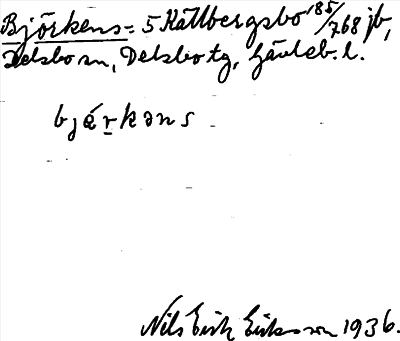 Björkens = 5 Källbergsbo 185/768 jb,
Delsbo sn, Delsbo tg, Gävleb. l.
bjǽrkəns
Nils Erik Eriksson 1936.